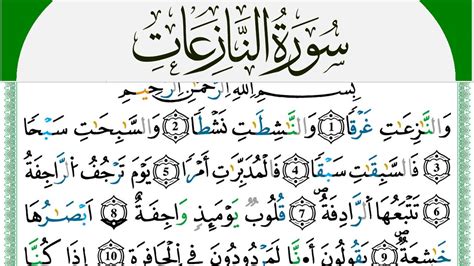 سُورَةُ النَّازِعَاتِ
بِسْمِ اللَّهِ الرَّحْمَٰنِ الرَّحِيمِ
وَالنَّٰزِعَٰتِ غَرْقًا ١ وَالنَّٰشِطَٰتِ نَشْطًا ٢ وَالسَّٰبِحَٰتِ سَبْحًا
٣ فَالسَّٰبِقَٰتِ سَبْقًا ٤ فَالْمُدَبِّرَٰتِ أَمْرًا ٥ يَوْمَ تَرْجُفُ الرَّاجِفَةُ
٦ تَتْبَعُهَا الرَّادِفَةُ ٧ قُلُوبٌ يَوْمَئِذٍ وَاجِفَةٌ ٨ أَبْصَٰرُهَا
خَٰشِعَةٌ ٩ يَقُولُونَ أَءِنَّا لَمَرْدُودُونَ فِي الْحَافِرَةِ ١٠ إِذَا كُنَّا